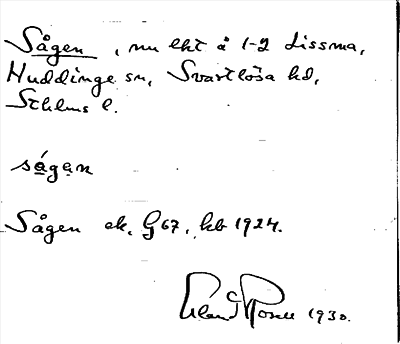 Sågen, nu lht å 1-2 Lissma,
Huddinge sn, Svartlösa hd,
Sthlms l.
ságan
Sågen ek. G 67, hb 1924.
1930.